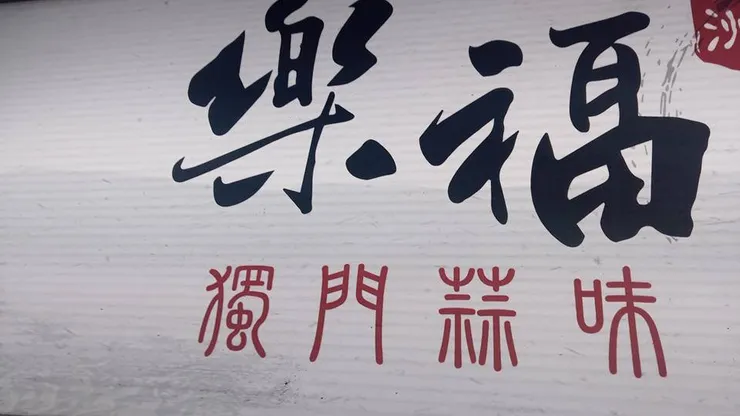 樂福
沙
獨門蒜味